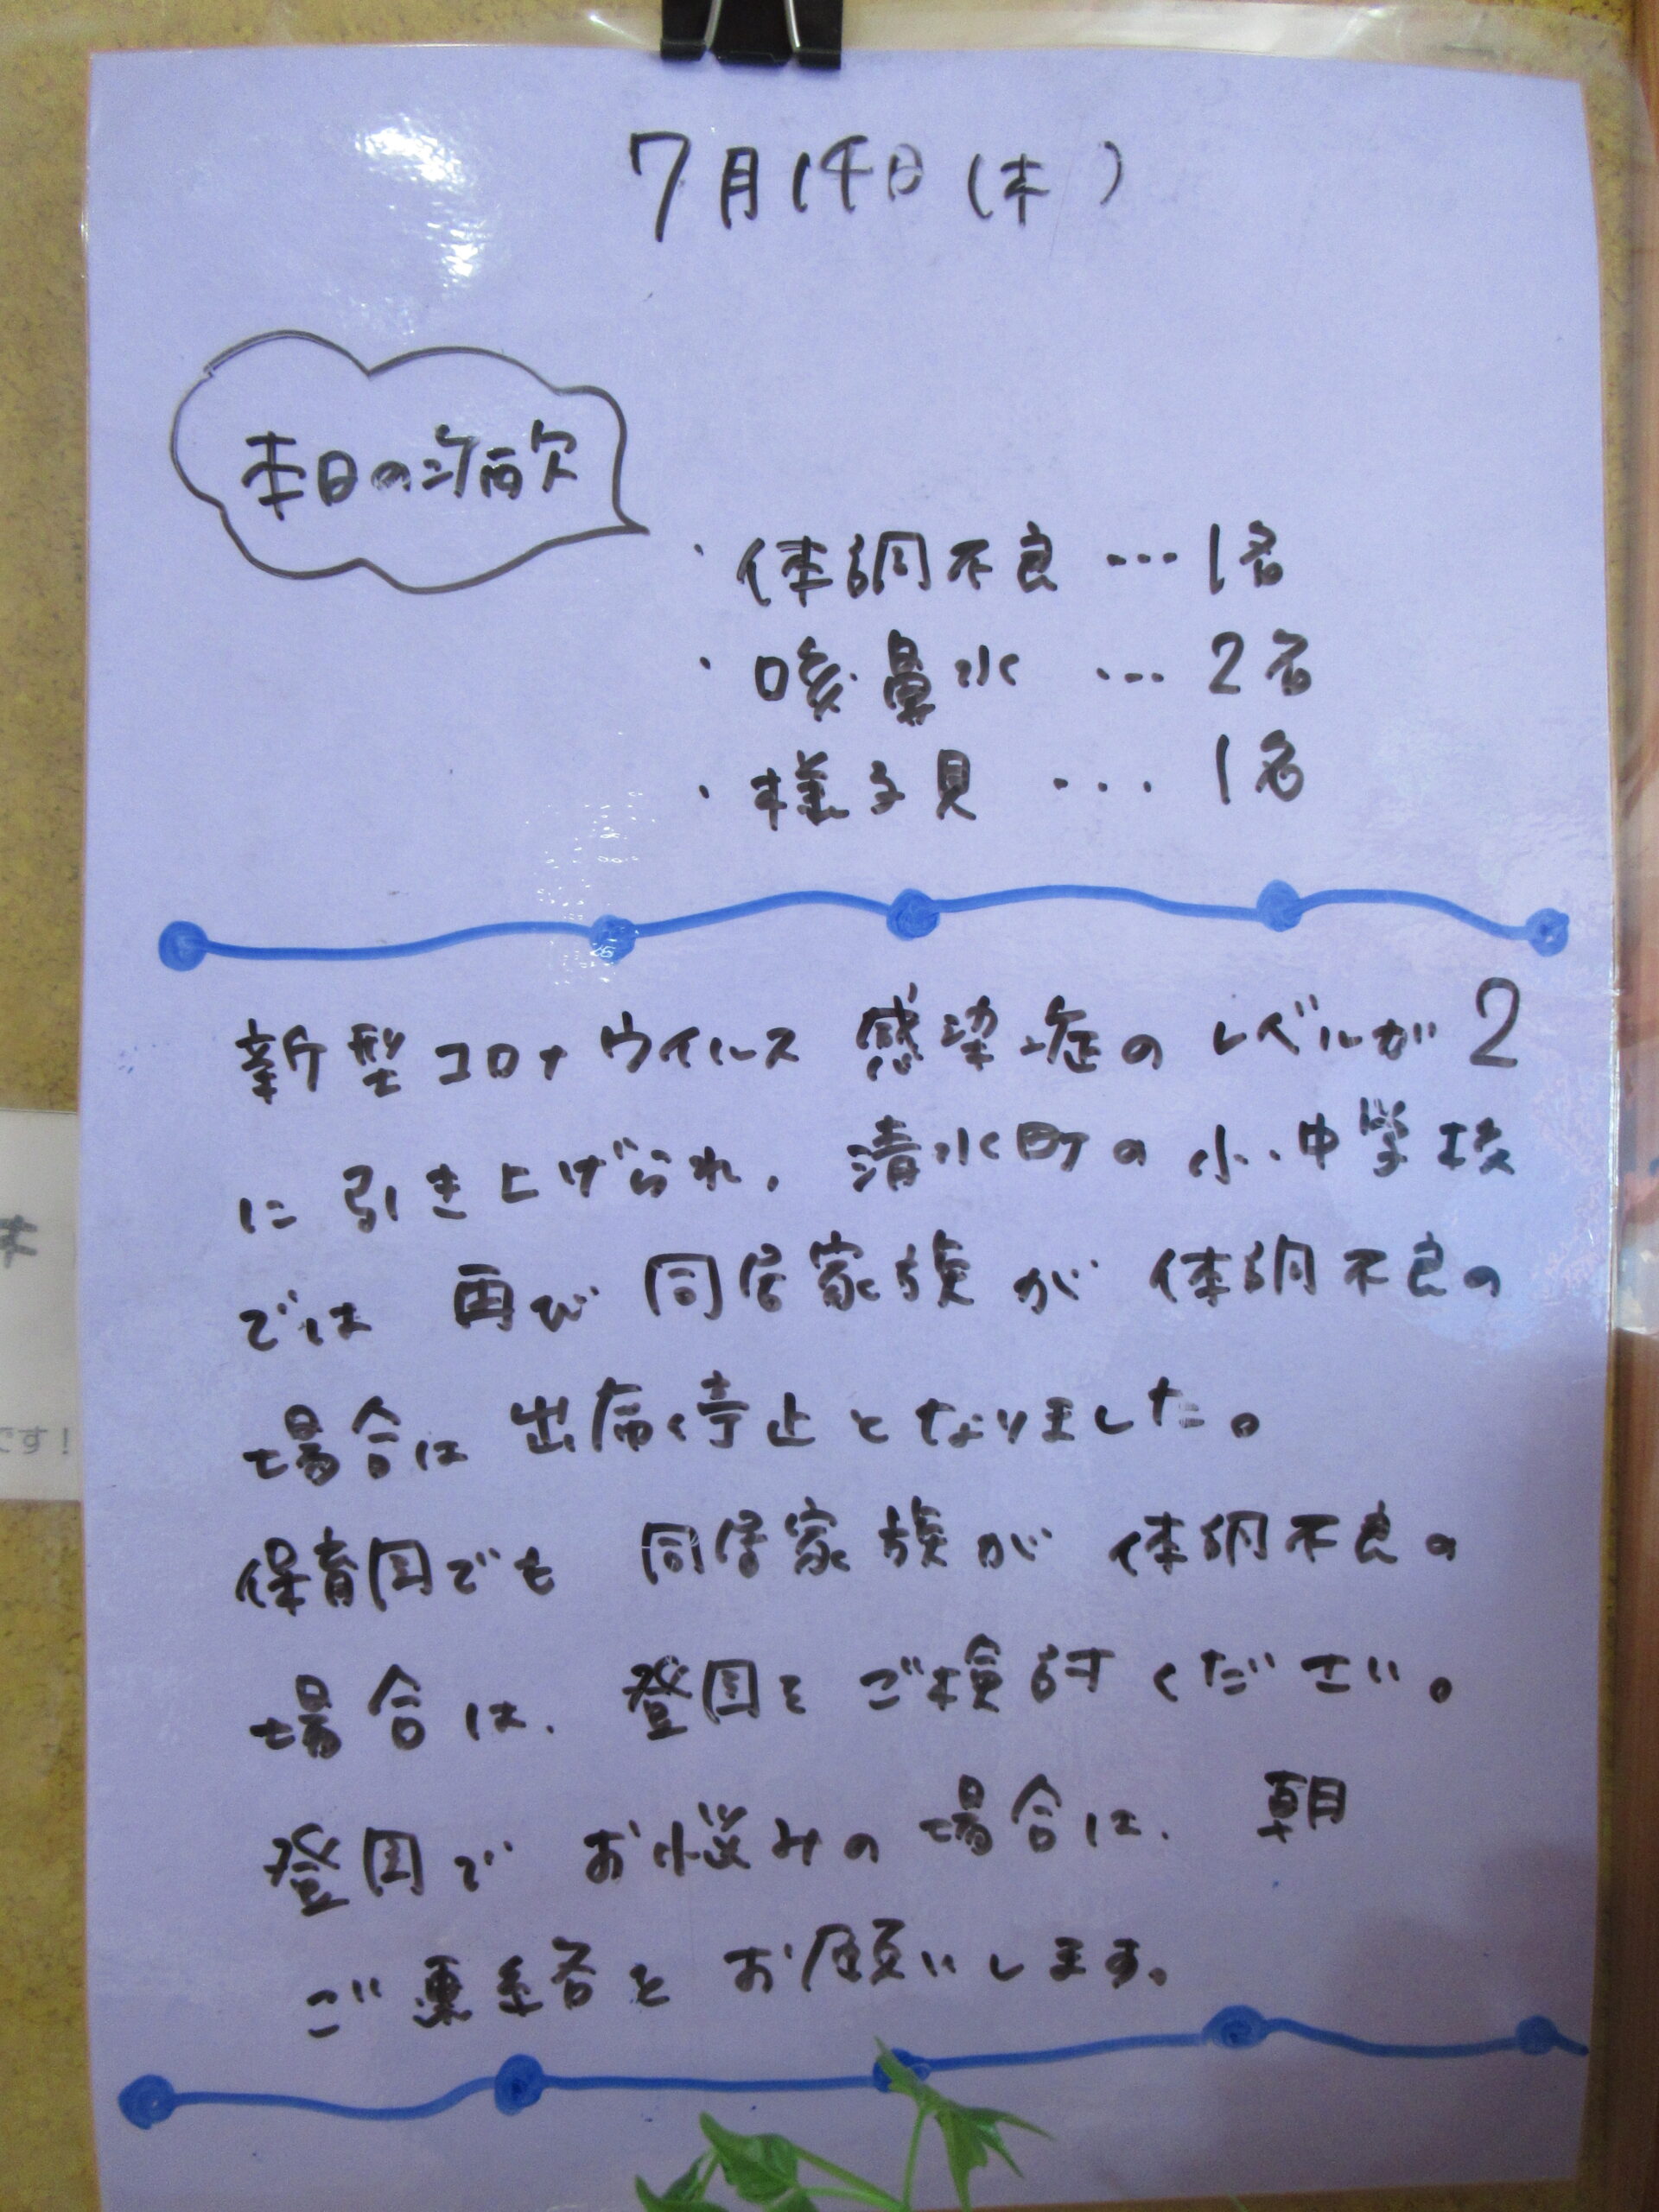 7月14日(木)
本日の病欠
・体調不良…1名
・咳鼻水…2名
・様子見…1名
新型コロナウイルス感染症のレベルが2
に引き上げられ、清水町の小・中学校
では再び同居家族が体調不良の
場合は出席停止となりました。
保育園でも同居家族が体調不良の
場合は、登園をご検討ください。
登園でお悩みの場合は、朝
ご連絡をお願いします。
木
です!